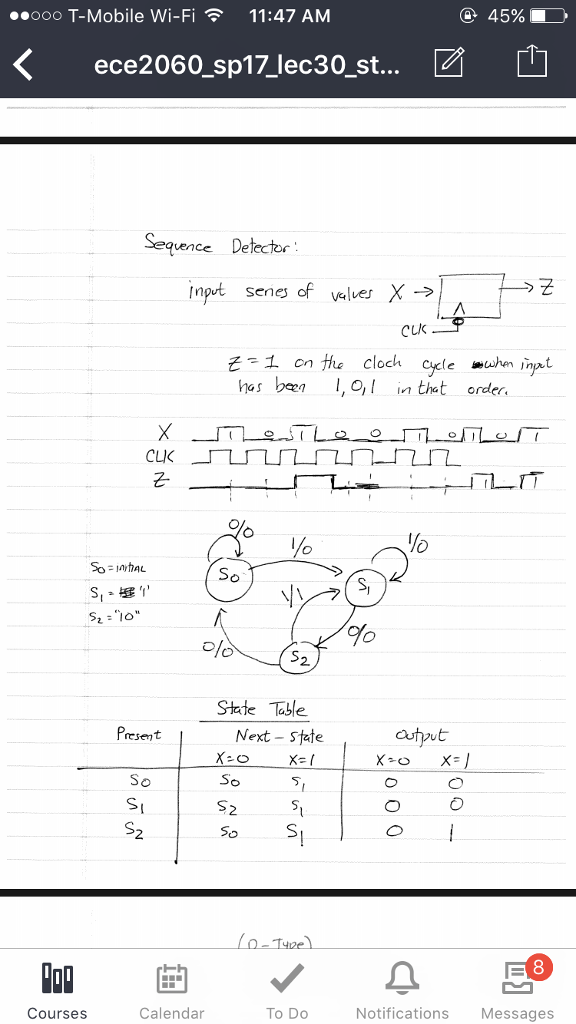 T-Mobile Wi-Fi 11:47 AM 45%
ece2060_sp17_lec30_st...
Sequence Detector:
input series of values X → → Z
CLK
Z = 1 on the clock cycle when input
has been 1, 0, 1 in that order.
X 1 0 1 0 0 1 0 1 0 1
CLK
Z 1 1
0/0
1/0 1/0
S0 = initial
S0 S1
S1 = '1'
1/1
S2 = "10"
0/0 0/0
S2
State Table
Present Next-State output
X=0 X=1 X=0 X=1
S0 S0 S1 0 0
S1 S2 S1 0 0
S2 S0 S1 0 1
(D-Type)
8
Courses Calendar To Do Notifications Messages